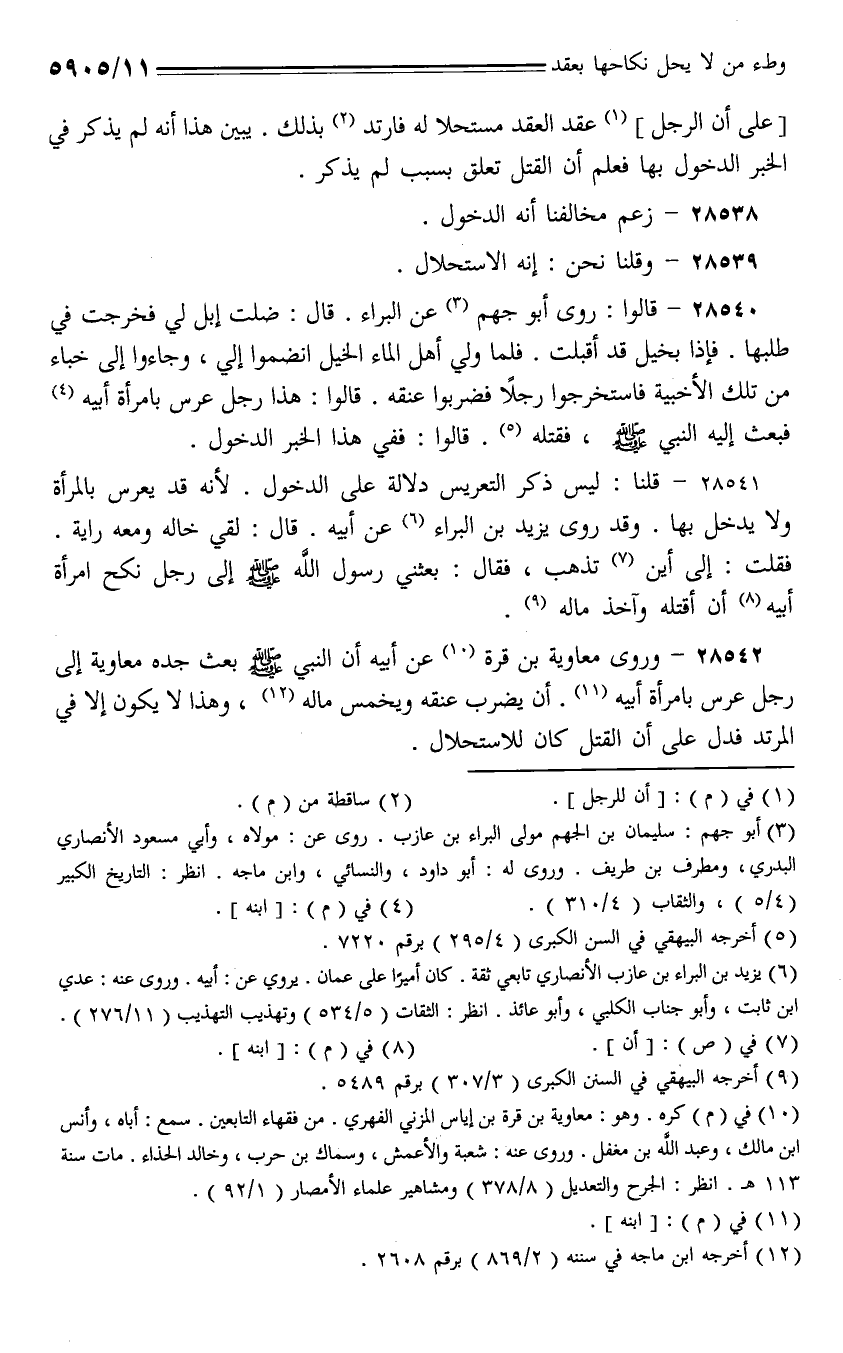 وطء من لا يحل نكاحها بعقد ٥٩٠٥/١١
[ على أن الرجل ] (١) عقد العقد مستحلا له فارتد (٢) بذلك . يبين هذا أنه لم يذكر في
الخبر الدخول بها فعلم أن القتل تعلق بسبب لم يذكر .
٢٨٥٣٨ - زعم مخالفنا أنه الدخول .
٢٨٥٣٩ - وقلنا نحن : إنه الاستحلال .
٢٨٥٤٠ - قالوا : روى أبو جهم (٣) عن البراء . قال : ضلت إبل لي فخرجت في
طلبها . فإذا بخيل قد أقبلت . فلما ولي أهل الماء الخيل انضموا إلي ، وجاءوا إلى خباء
من تلك الأخبية فاستخرجوا رجلًا فضربوا عنقه . قالوا : هذا رجل عرس بامرأة أبيه (٤)
فبعث إليه النبي ﷺ ، فقتله (٥) . قالوا : ففي هذا الخبر الدخول .
٢٨٥٤١ - قلنا : ليس ذكر التعريس دلالة على الدخول . لأنه قد يعرس بالمرأة
ولا يدخل بها . وقد روى يزيد بن البراء (٦) عن أبيه . قال : لقي خاله ومعه راية .
فقلت : إلى أين (٧) تذهب ، فقال : بعثني رسول اللَّه ﷺ إلى رجل نكح امرأة
أبيه (٨) أن أقتله وآخذ ماله (٩) .
٢٨٥٤٢ - وروى معاوية بن قرة (١٠) عن أبيه أن النبي ﷺ بعث جده معاوية إلى
رجل عرس بامرأة أبيه (١١) . أن يضرب عنقه ويخمس ماله (١٢) ، وهذا لا يكون إلا في
المرتد فدل على أن القتل كان للاستحلال .
(١) في ( م ) : [ أن للرجل ] . (٢) ساقطة من ( م ) .
(٣) أبو جهم : سليمان بن الجهم مولى البراء بن عازب . روى عن : مولاه ، وأبي مسعود الأنصاري
البدري ، ومطرف بن طريف . وروى له : أبو داود ، والنسائي ، وابن ماجه . انظر : التاريخ الكبير
( ٥/٤ ) ، والثقاب ( ٣١٠/٤ ) . (٤) في ( م ) : [ ابنه ] .
(٥) أخرجه البيهقي في السن الكبرى ( ٢٩٥/٤ ) برقم ٧٢٢٠ .
(٦) يزيد بن البراء بن عازب الأنصاري تابعي ثقة . كان أميرًا على عمان . يروي عن : أبيه . وروى عنه : عدي
ابن ثابت ، وأبو جناب الكلبي ، وأبو عائذ . انظر : الثقات ( ٥٣٤/٥ ) وتهذيب التهذيب ( ٢٧٦/١١ ) .
(٧) في ( ص ) : [ أن ] . (٨) في ( م ) : [ ابنه ] .
(٩) أخرجه البيهقي في السنن الكبرى ( ٣٠٧/٣ ) برقم ٥٤٨٩ .
(١٠) في ( م ) كره . وهو : معاوية بن قرة بن إياس المزني الفهري . من فقهاء التابعين . سمع : أباه ، وأنس
ابن مالك ، وعبد اللَّه بن مغفل . وروى عنه : شعبة والأعمش ، وسماك بن حرب ، وخالد الحذاء . مات سنة
١١٣ هـ . انظر : الجرح والتعديل ( ٣٧٨/٨ ) ومشاهير علماء الأمصار ( ٩٢/١ ) .
(١١) في ( م ) : [ ابنه ] .
(١٢) أخرجه ابن ماجه في سننه ( ٨٦٩/٢ ) برقم ٢٦٠٨ .